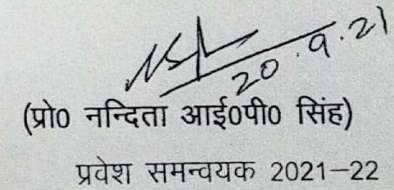 20.9.21
(प्रो0 नन्दिता आई0पी0 सिंह)
प्रवेश समन्वयक 2021-22